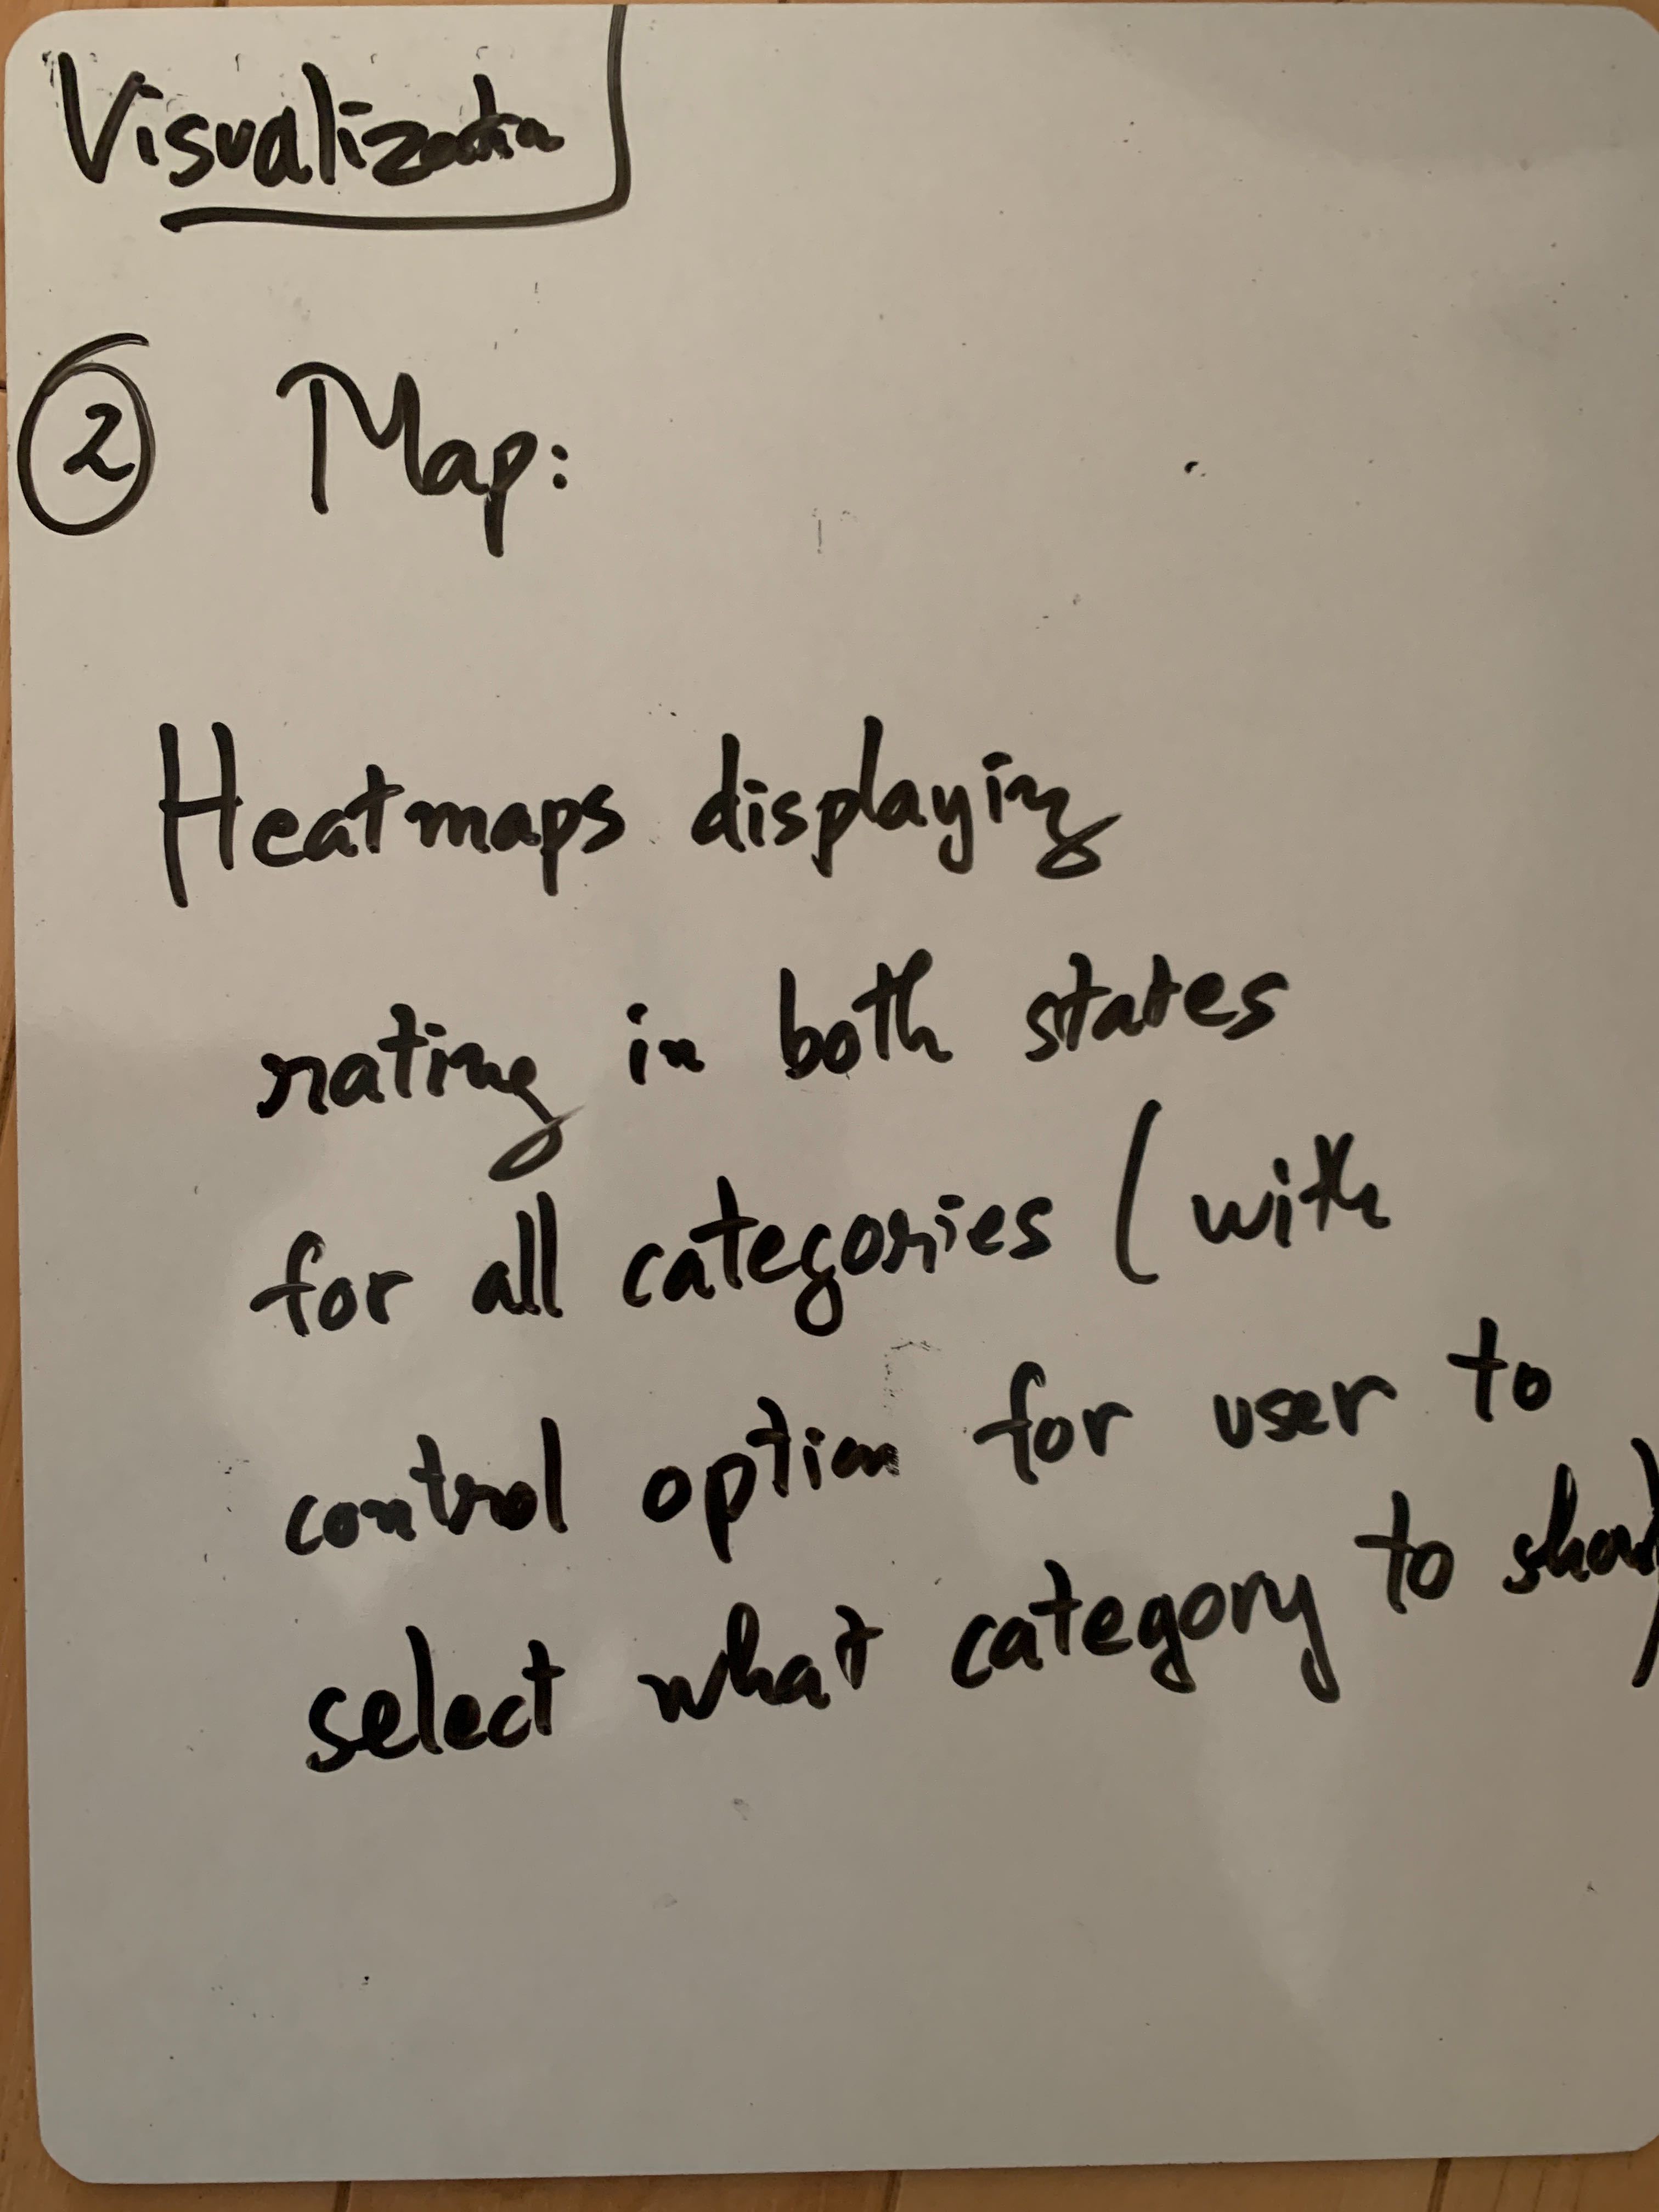 Visualization
② Map:
Heatmaps displaying
rating in both states
for all categories (with
control option for user to
select what category to show)